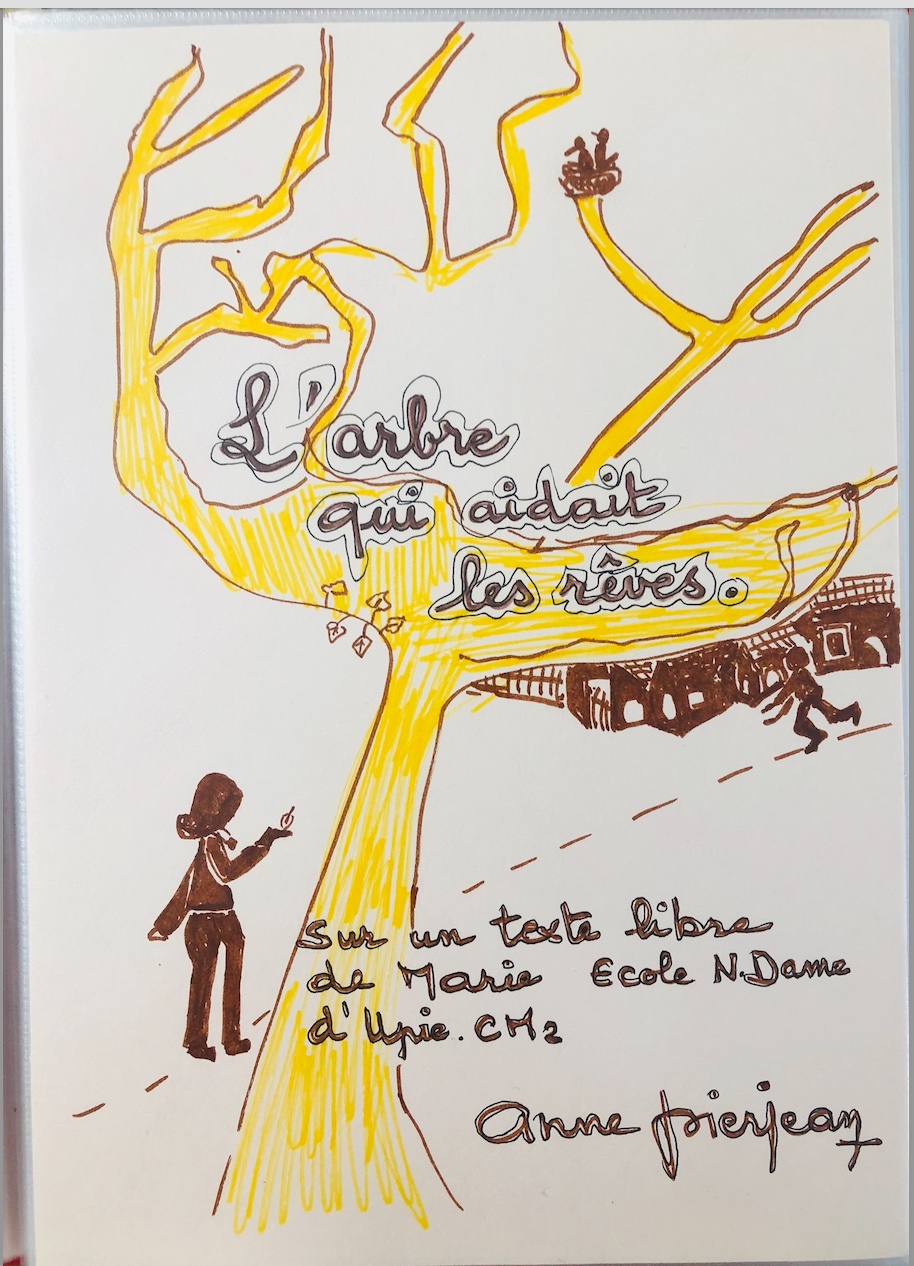 L'arbre
qui aidait
les rêves.
Sur un texte libre
de Marie Ecole N.Dame
d'Upie. CM2
Anne Pierjean